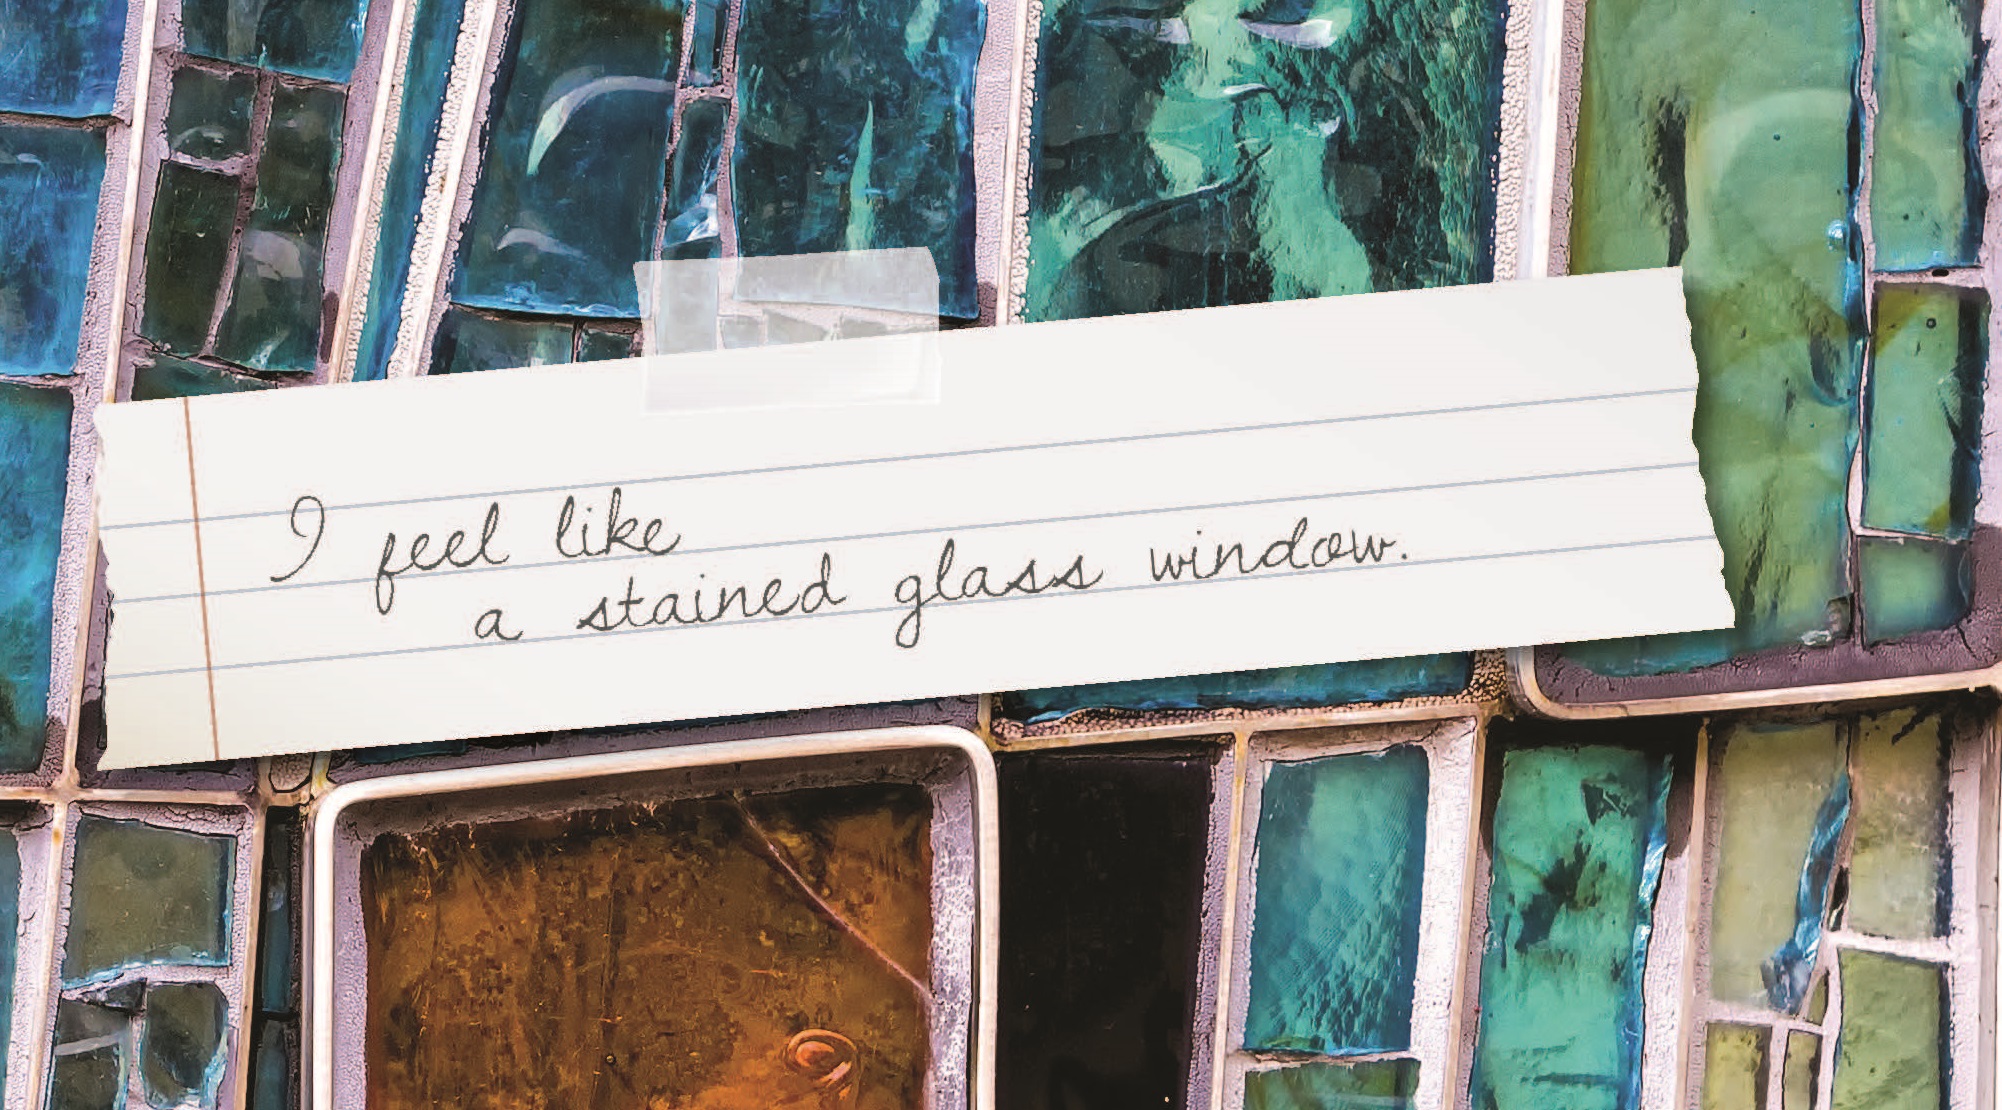 I feel like
a stained glass window.